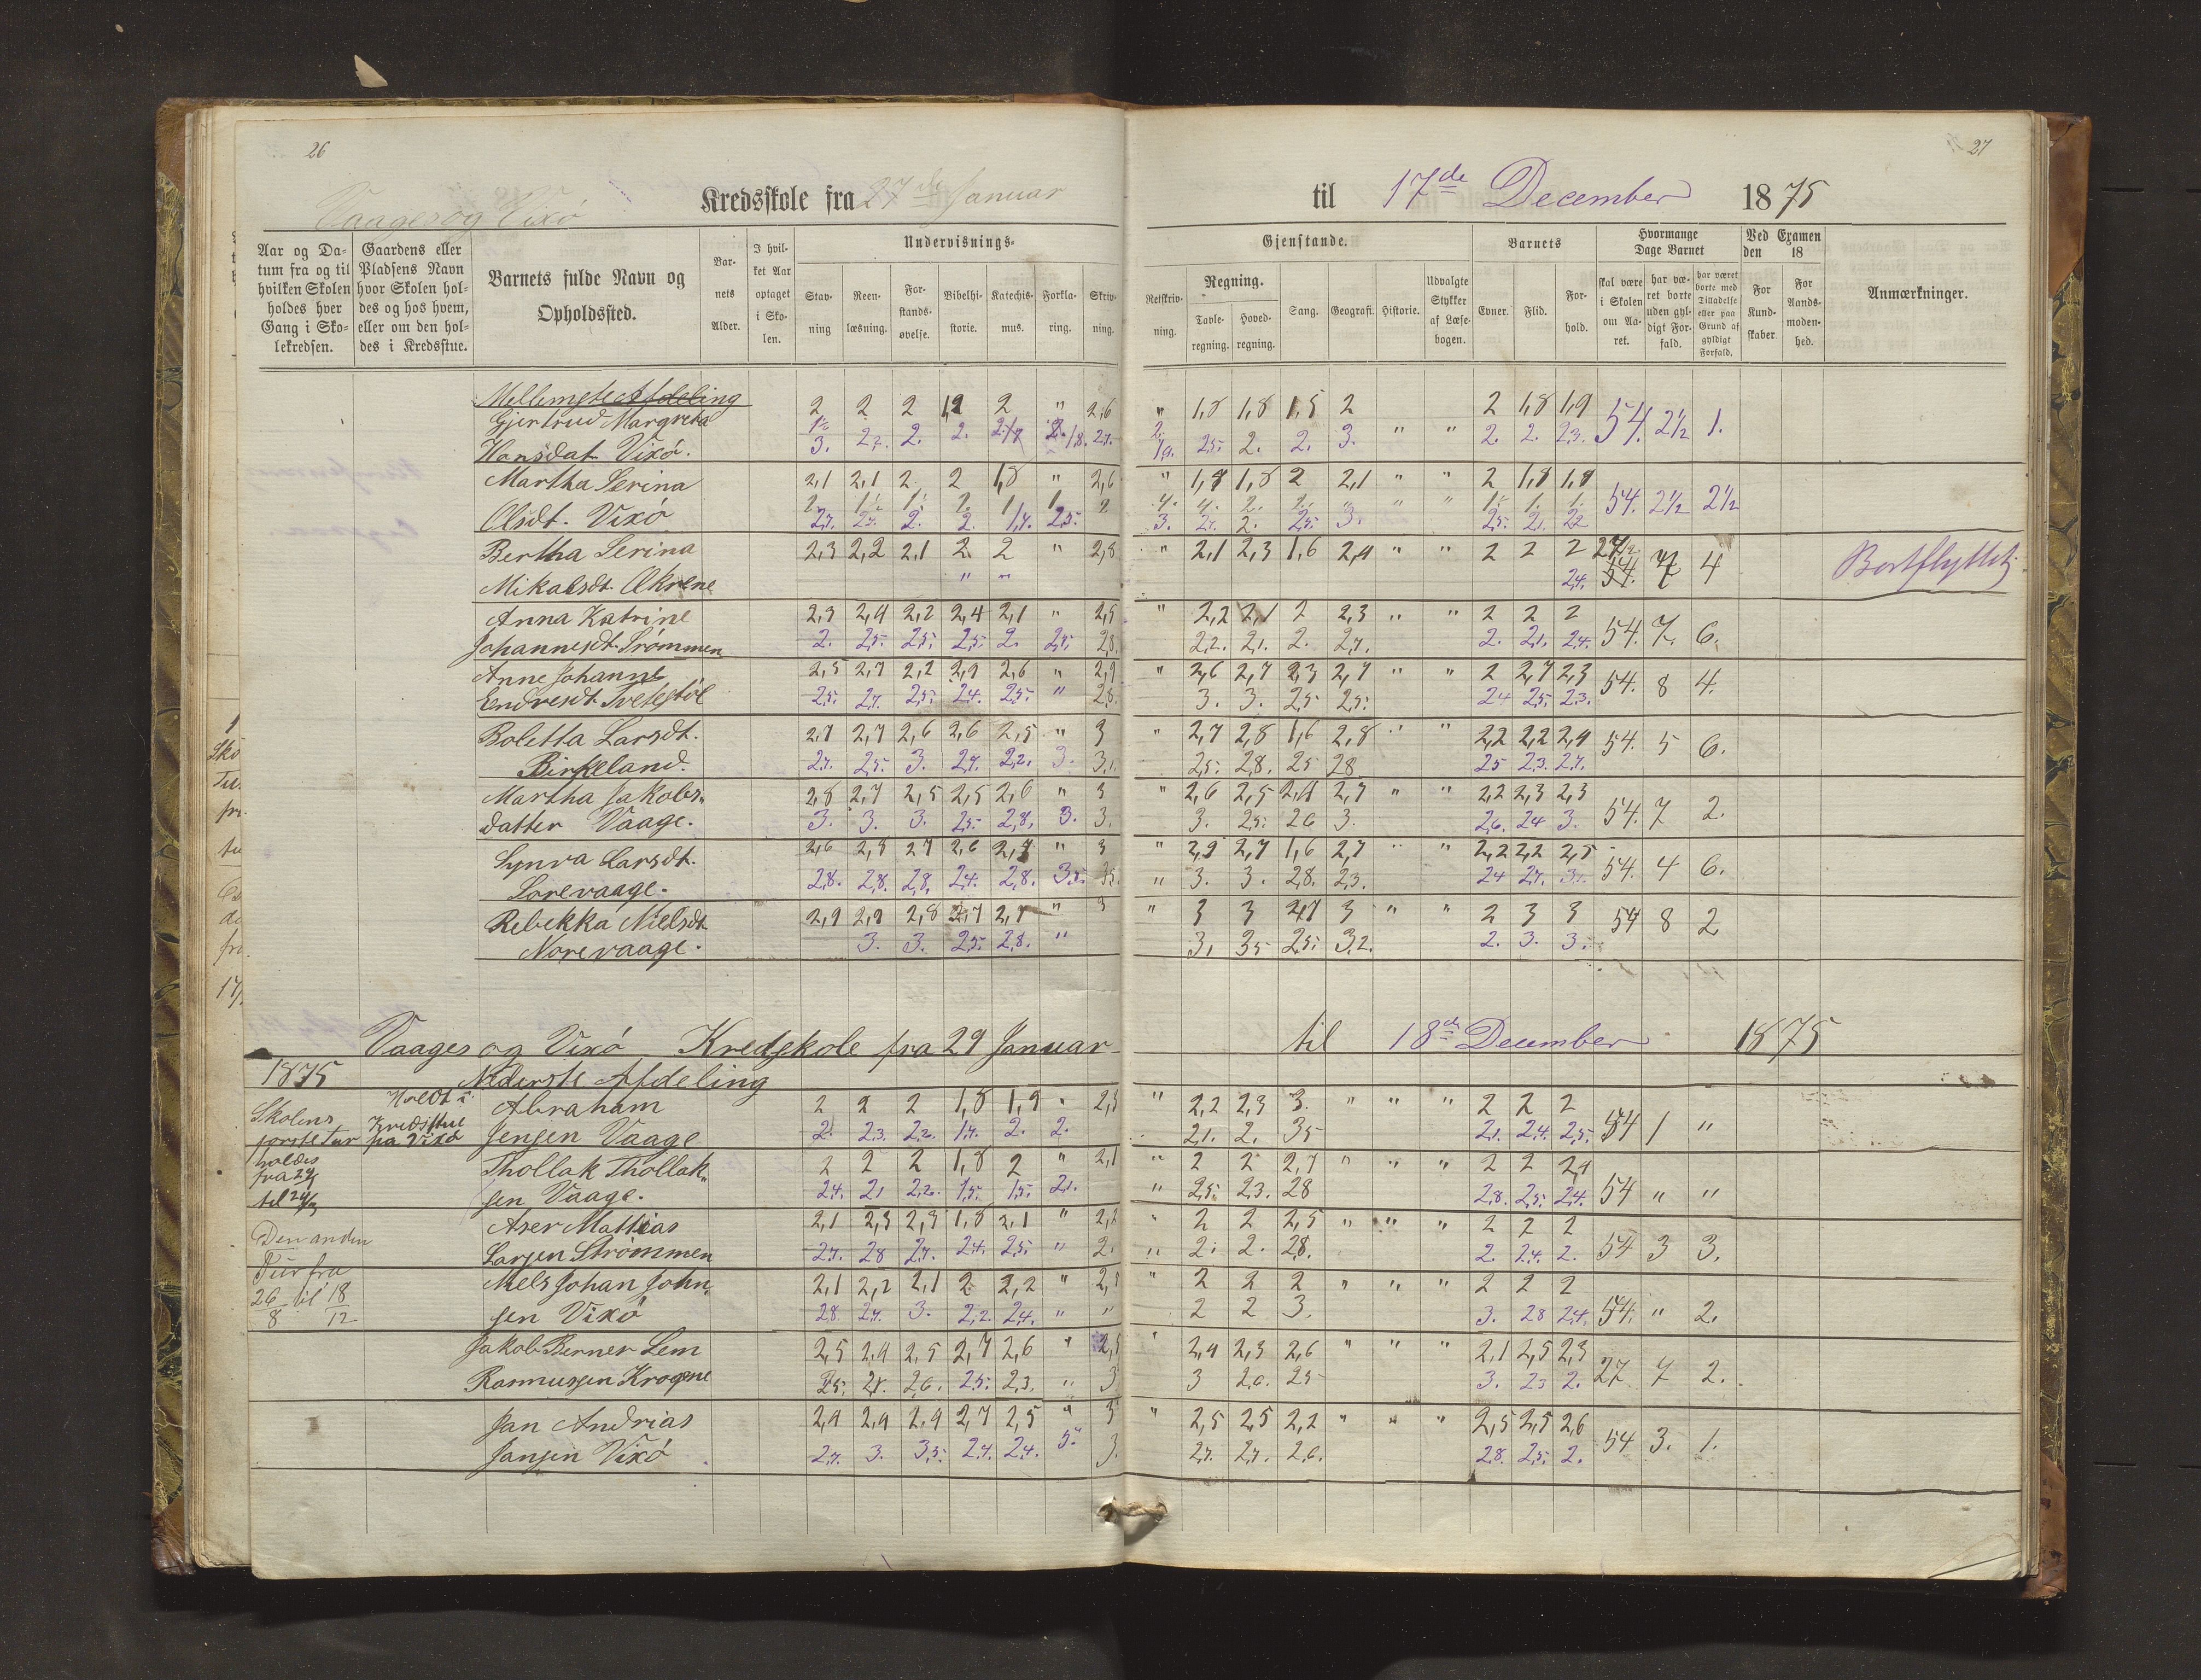 26
27
Vaages og Vixø Kredsskole fra 27de Januar til 17de December 1875
Aar og Datum fra og til hvilken Skolen holdes hver Gang i Skolekredsen.
Gaardens eller Pladsens Navn hvor Skolen holdes og hos hvem, eller om den holdes i Kredsstue.
Barnets fulde Navn og Opholdssted.
Barnets Alder.
I hvilket Aar optaget i Skolen.
Undervisnings- Gjenstande.
Stavning
Reenlæsning.
Forstandsøvelse.
Bibelhistorie.
Katechismus.
Forklaring.
Skrivning.
Retskrivning.
Regning.
Tavleregning.
Hovedregning.
Sang.
Geografi.
Historie.
Udvalgte Stykker af Læsebogen.
Barnets
Evner.
Flid.
Forhold.
Hvormange Dage Barnet
skal være i Skolen om Aaret.
har været borte uden gyldigt Forfald.
har været borte med Tilladelse eller paa Grund af gyldigt Forfald.
Ved Examen den 18
For Kundskaber
For Aandsmodenhed.
Anmærkninger.
Mellemste Afdeling
Gjertrud Margreta 2 2 2 2 " 2,6 " 1,8 1,8 1,5 2 2 1,8 1,9 54. 2½ 1.
Hansdat. Vixø. 3. 2. 2. 2. 2. 3. " " 2. 2. 2,3.
Martha Serina 2,1 2,1 2 2 1,8 " 2,6 " 1,8 1,8 2 2,1 " " 2 1,8 1,8 54. 2½ 2½
Olsdt. Vixø 2. 2. 3. 2. 2,5. 3.
Bertha Serina 2,3 2,2 2,1 2 2 " 2,8 " 2,1 2,3 1,6 2,4 " " 2 2 2 7 4 Bortflyttet.
Mikalsdt. Økrene " " 2,4. 54.
Anna Katrine 2,3 2,4 2,2 2,4 2,1 " 2,5 " 2,2 2,1 2 2,3 " " 2 2 2 54. 7. 6.
Johannesdt. Strømmen 2. 2,5. 2,5. 2,5. 2. 2,8. 2,2. 2,1. 2. 2,7. 2. 2,1. 2,4.
Anne Johanne 2,5 2,7 2,2 2,9 2,6 " 2,9 " 2,6 2,7 2,3 2,7 " " 2 2,7 2,3 54. 8 4.
Endresdt. Tvetestøl 2,5. 2,7. 2,5. 2,4. 2,5. " 2,8. 3. 3. 2,5 2,5. 2,4 2,5. 2,3.
Boletta Larsdt. 2,7 2,7 2,6 2,6 2,5 " 3 " 2,7 2,8 1,6 2,8 " " 2,2 2,2 2,4 54. 5 6.
Birkeland. 2,7. 2,5. 3. 2,7. 2,2. 3. 3,1. 2,5. 2,8. 25 28 25 2,3. 2,7.
Martha Jakobs- 2,8 2,7 2,5 2,5 2,6 " 3 " 2,6 2,5 2,7 " " 2,2 2,3 2,3 54. 7 2.
datter Vaage. 3. 3. 3. 2,5. 2,8. 3. 3. 3. 2,5. 26 3. 2,6. 24 3.
Synva Larsdt. 2,6 2,8 27 2,6 " 3 " 2,9 2,7 1,6 2,7 " " 2,2 2,2 2,5 54. 4 6.
Sørevaage. 2,8. 2,8. 2,8. 2,4. 2,8. 3,5. 3,5. " 3. 3. 2,8. 2,3. 24 2,7.
Rebekka Nielsdt. 2,9 2,9 2,8 2,7 2,7 " 3 " 3 3 3 " " 2 3 3 54 8 2
Norevaage. 3. 3. 2,5. 2,8. " 3. 35 2,5. 3,2. 2. 3. 3.
Vaages og Vixø Kredsskole fra 29 Januar til 18de December 1875
1875 Nederste Afdeling
Skolens første Tur holdes fra til
Holdt i Kredsstue på Vixø
Abraham 2 2 2 1,8 1,9 " 2,3 " 2,2 2,3 3. " " " 2 2 2 54 1 "
Jensen Vaage 2. 2,3. 2,2. 1,7. 2. 2. 2,1. 2. 35 2,1. 2,4. 2,5.
Thollak Thollak- 2 2 2 1,8 2 " 2,1 " 2 2 2,7 " " " 2 2 2,4 54 " "
sen Vaage. 2,4. 2,1 2,2. 1,5. 1,5. 2,1. " 2,5. 2,3. 28 2,8. 2,5. 2,4.
Den anden Tur fra 26/8 til 18/12
Aser Mattias 2,1 2,3 2,3 1,8 2,1 " 2,2 " 2 2 2,5 " " " 2 2 2 54 3 3.
Larsen Strømmen 2,7. 28 2,7. 2,4. 2,5. " 2. " 2. 2. 2,8. 2. 2,4. 2.
Nels Johan John- 2,1 2,2 2,1 2 2,2 " 2,5 " 2 2 2 " " " 2 2 2 54. " 2.
sen Vixø 2,8. 2,7. 3. 2,2. 2,4. " " 2 2 3. 3. 28 2,4.
Jakob Berner Lem 2,5 2,4 2,5 2,7 2,6 " 2,5 " 2,4 2,3 2,6 " " " 2,1 2,5 2,3 27 7 2.
Rasmussen Krogene 2,5. 2,6. 2,5. 2,3. " 3 3 2,6. 25 3. 23 2.
Jan Andrias 2,9 2,9 2,9 2,7 2,5 " 3 " 2,5 2,5 2,2 " " " 2,5 2,5 2,6 54 3. 1.
Jansen Vixø 2,7. 3. 3,5. 2,7. 2,4. 3. 2,7. 2,7. 2,6. 2,8. 2,5. 2.